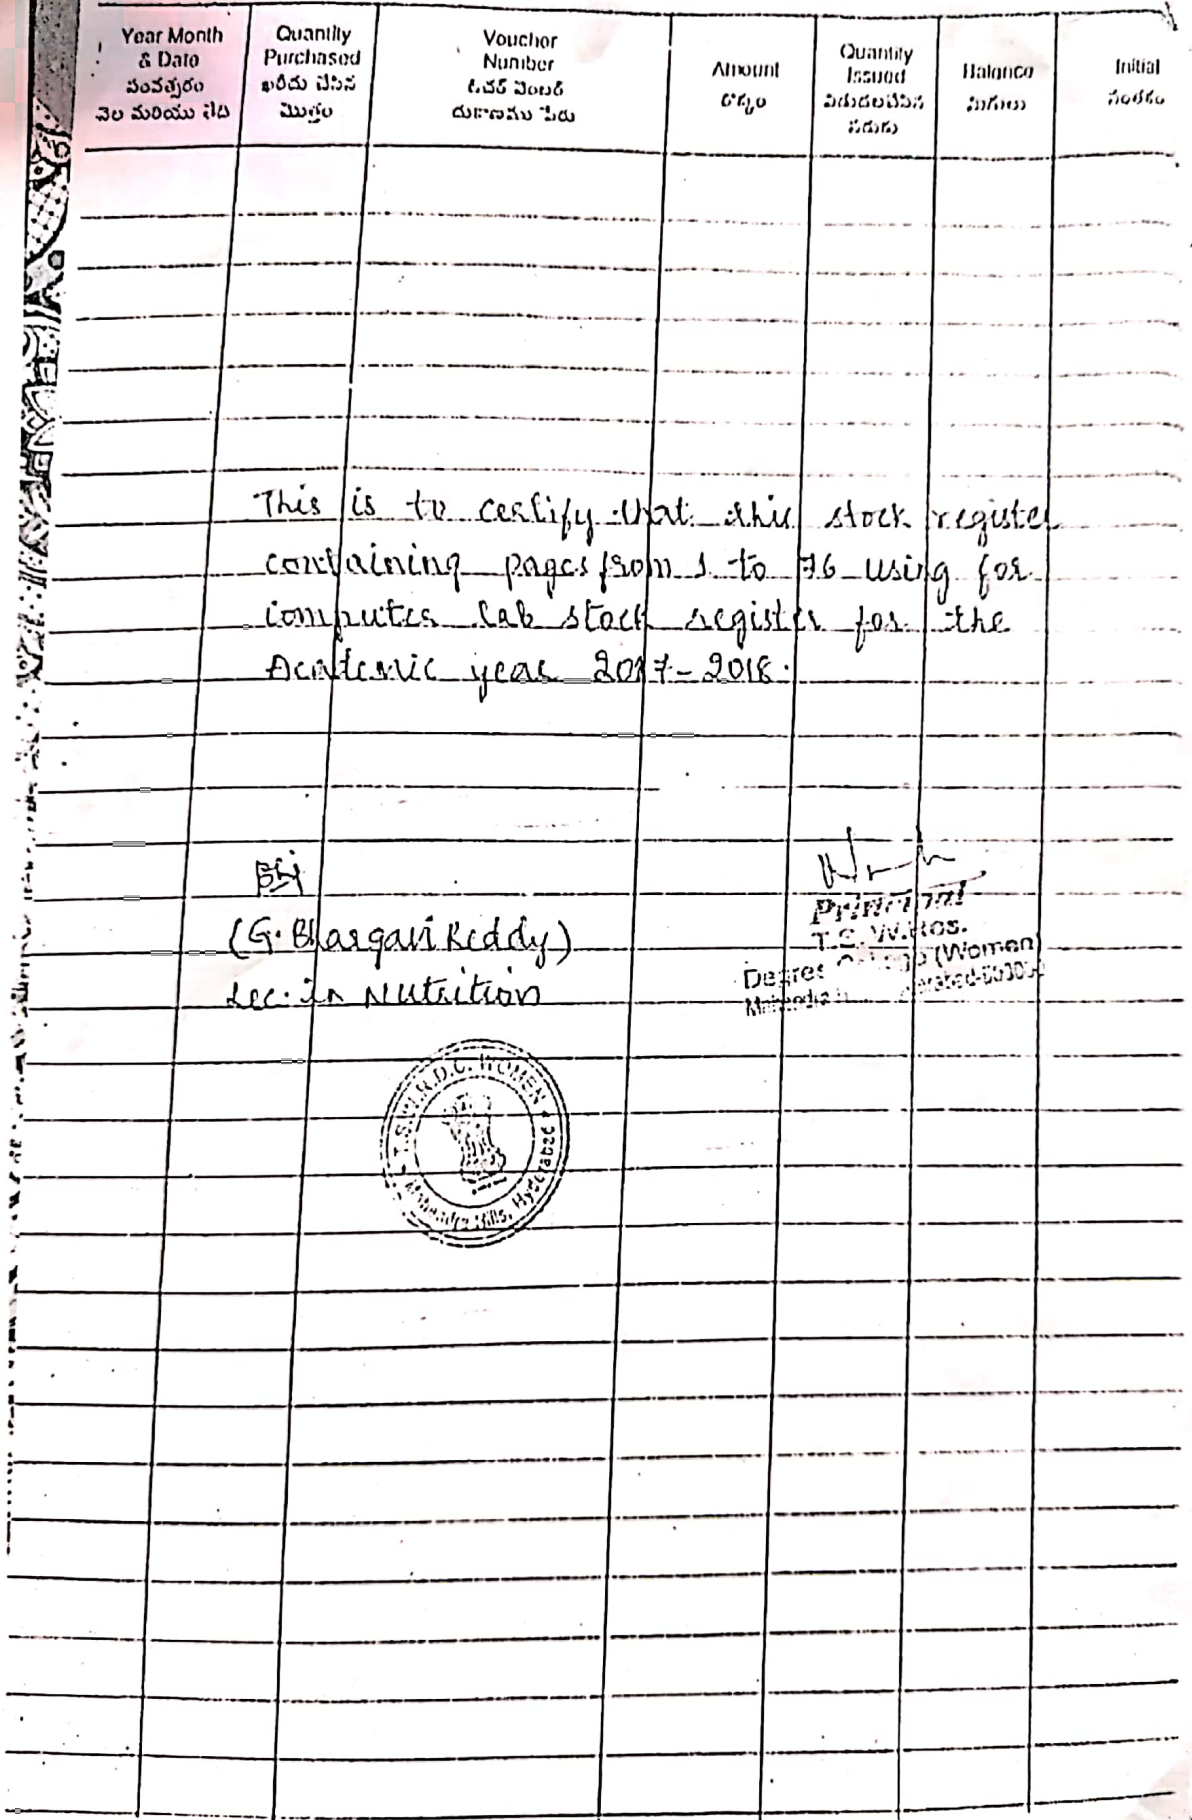 Year Month
& Date
సంవత్సరం
నెల మరియు తేది
Quantity
Purchased
ఖరీదు చేసిన
మొత్తం
Vouchor
Number
ఓచర్ నెంబర్
దుకాణము పేరు
Amount
రొక్కం
Quantity
Issued
విడుదలచేసిన
సరుకు
Balance
మిగులు
Initial
సంతకం
This is to certify that this stock register
containing pages from 1 to 76 using for
computer lab stock register for the
Academic year 2017-2018.
(G. Bhargavi Reddy)
Lec. in Nutrition
Principal
T.S. W.Res.
Degree College (Women)
T.S.W.R.D.C. WOMEN
Mahendra Hills, Hyderabad